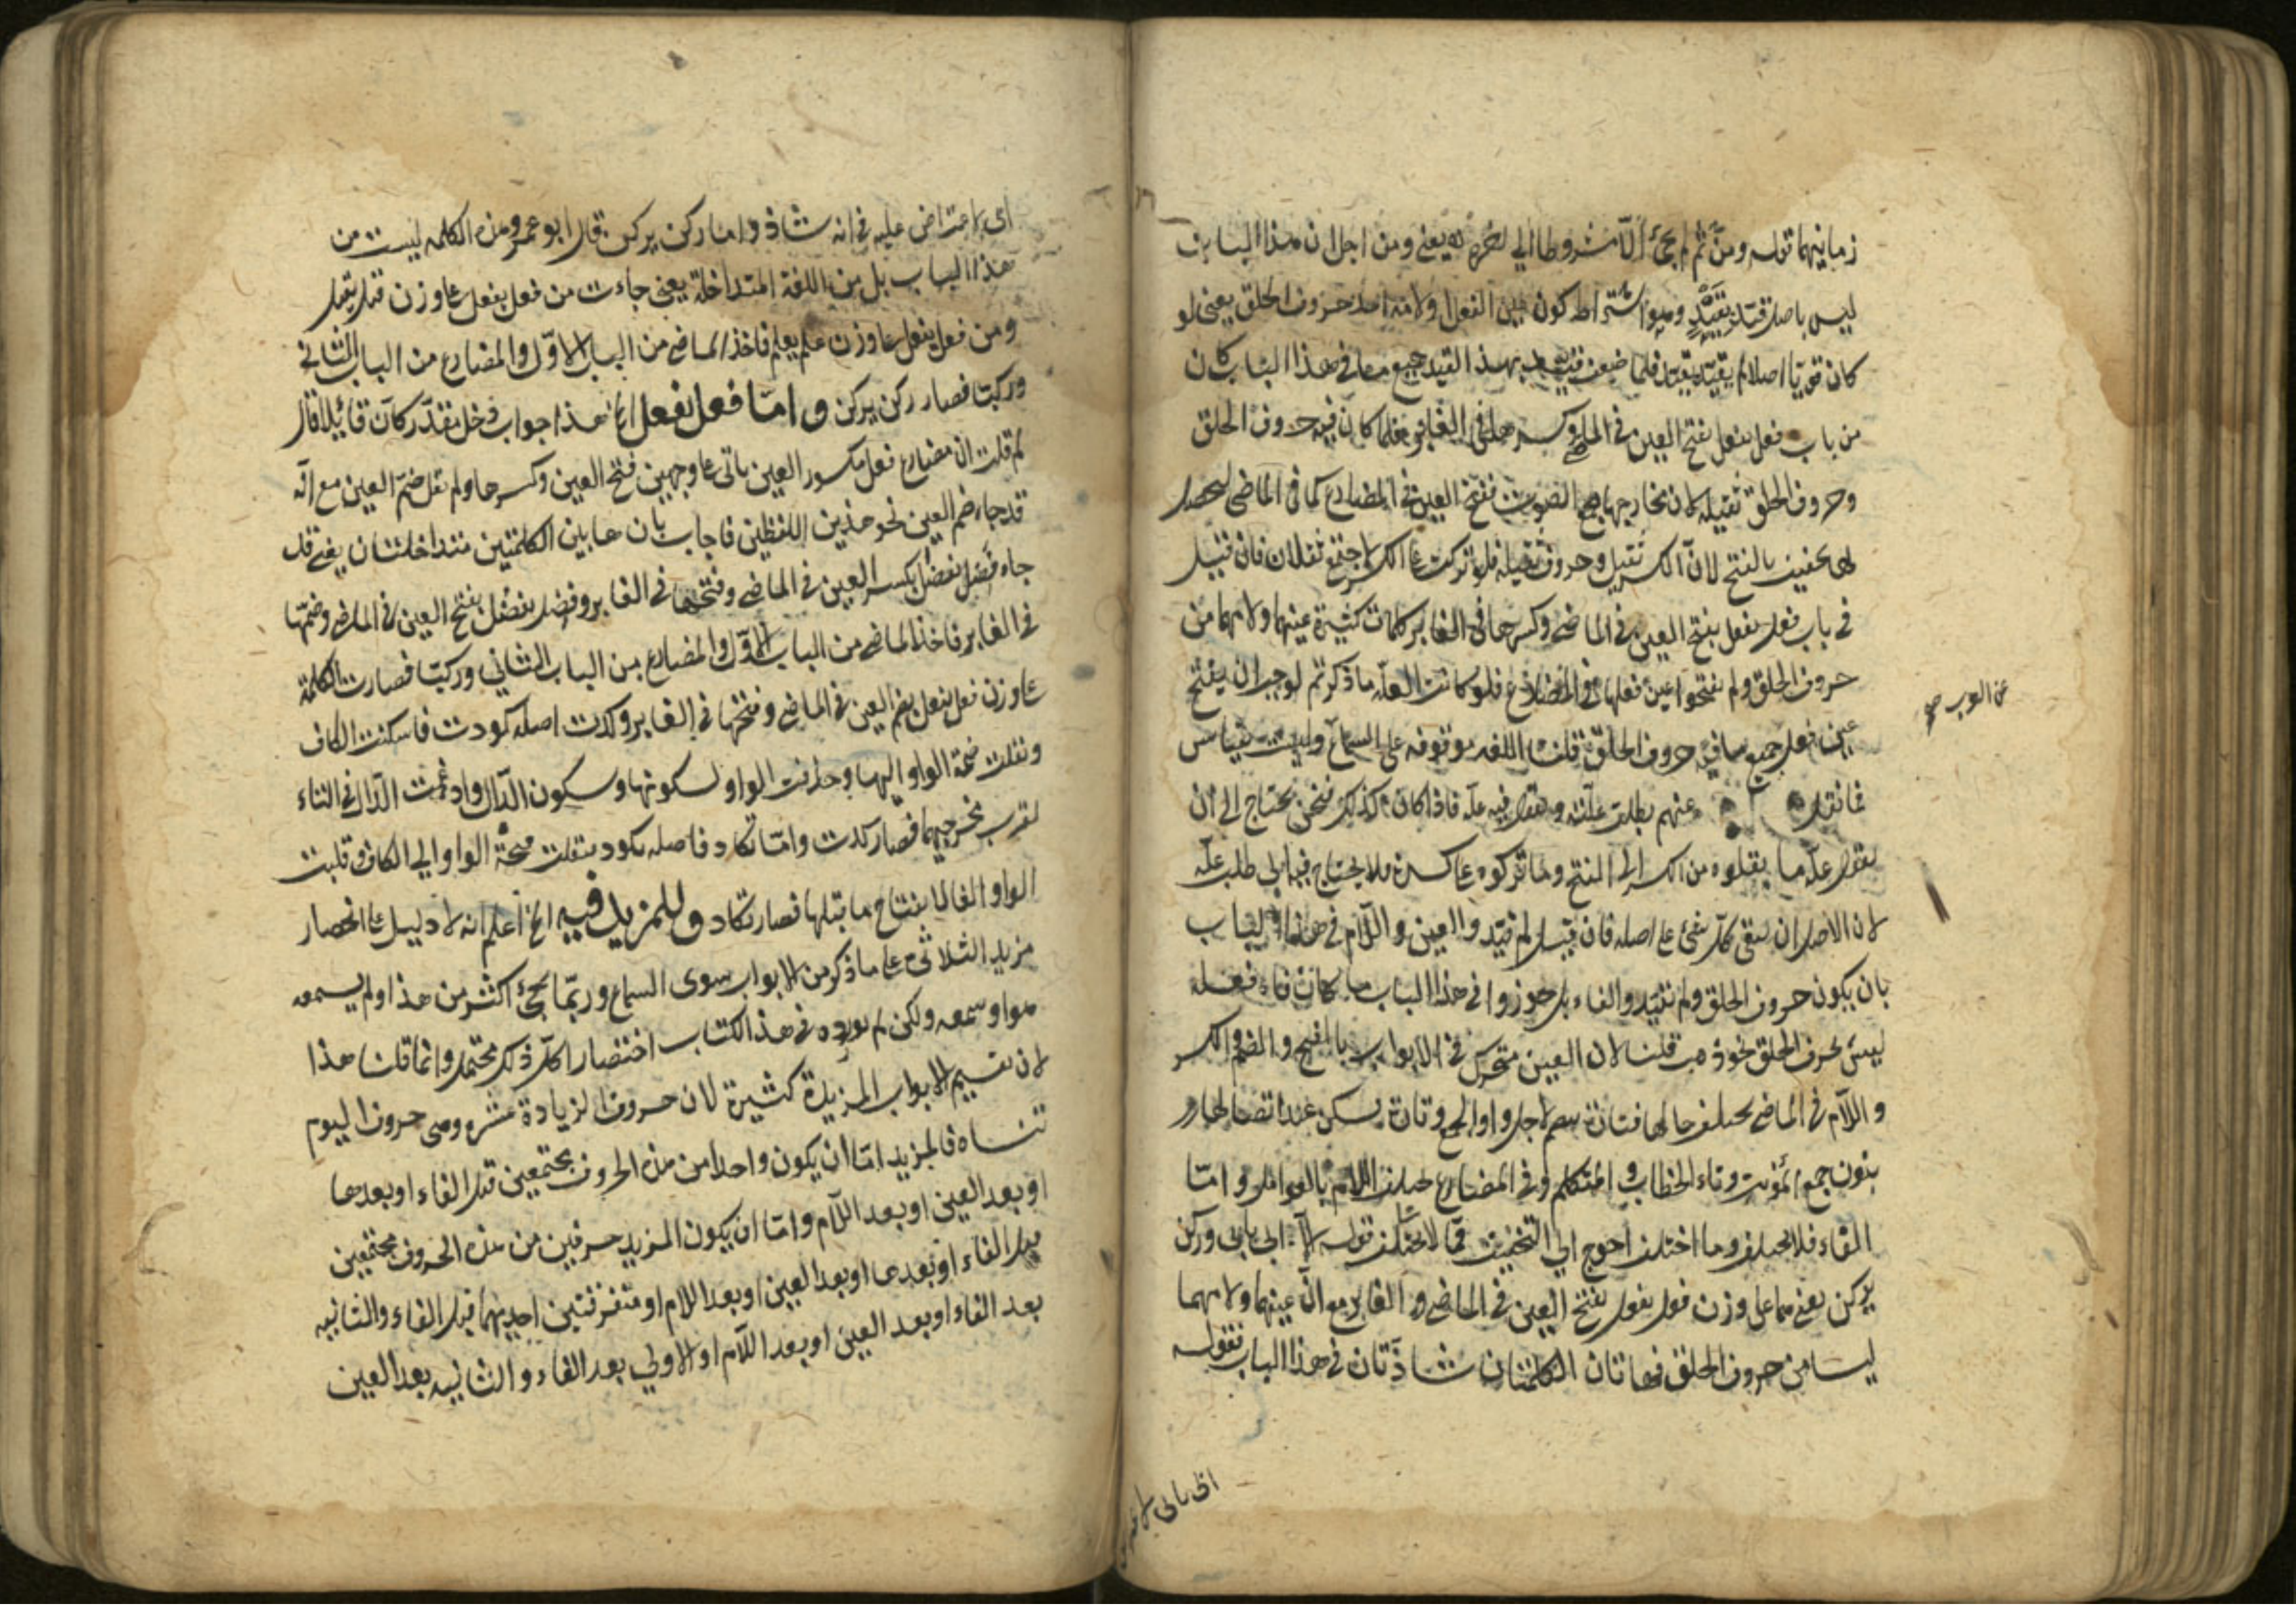 زمانيهما قوله ومن ثم لم يجئ الا مشروطا الى اخره يعنى ومن اجل ان هذا الباب
ليس باصل قيد بقيد وهو اشتراط كون عين الفعل او لامه احد حروف الحلق يعنى لو
كان قويا اصلا لم يقيد بقيد فلما ضعف قيد بهذا القيد جميع ما فى هذا الباب كان
من باب فعل يفعل بفتح العين فى الماضى وكسرها فى الغابر فلما كان فيه حروف الحلق
وحروف الحلق ثقيلة لان مخارجها الصوت ففتح العين فى المضارع كما فى الماضى ليحصل
لها تخفيف بالفتح لان الكسر ثقيل وحروف ثقيلة فلو تركت على الكسر اجتمع ثقلان فان قيل
فى باب فعل يفعل بفتح العين فى الماضى وكسرها فى الغابر كلمات كثيرة عينها ولامها من
حروف الحلق ولم يفتحوا عين فعلها فى المضارع فلو كانت العلة ما ذكرتم لوجب ان يفتح
عين فعل جميع ما فيه حروف الحلق قلنا اللغة موقوفة على السماع وليست بقياس
فما نقل عنهم يطلب علته ويقول فيه علة فاذا كان كذلك فنحن نحتاج الى ان
نقول علة ما نقلوه من الكسر الى الفتح وما تركوه على كسره فلا يحتاج فيه الى طلب علة
لان الاصل ان يبقى كل شئ على اصله فان قيل لم قيدوا العين واللام فى هذا الباب
بان يكون حروف الحلق ولم يقيدوا الفاء بل جوزوا فى هذا الباب ما كان فاء فعله
ليس بحرف الحلق نحو ذهب قلنا لان العين متحرك فى الابواب بالفتح والضم والكسر
واللام فى الماضى يختلف حالها فتارة يضم لاجل واو الجمع وتارة يسكن عند اتصالها
بنون جمع المؤنث وتاء الخطاب والمتكلم وفى المضارع يختلف اللام بالعوامل واما
الفاء فلا يختلف وما اختلف احوج الى التخفيف مما لا يختلف قوله الا ابى يابى وركن
يركن يعنى هما على وزن فعل يفعل بفتح العين فى الماضى والغابر مع ان عينهما ولامهما
ليسا من حروف الحلق فهاتان الكلمتان شاذتان فى هذا الباب فقوله
عن العرب صح
ابى يابى لا
اى لا اعتراض عليه فى انه شاذ واما ركن يركن فقال ابو عمرو هذه الكلمه ليست من
هذا الباب بل من اللغة المتداخلة يعنى جاءت من فعل يفعل على وزن قتل يقتل
ومن فعل يفعل على وزن علم يعلم فاخذ الماضى من الباب الاول والمضارع من الباب الثانى
وركبتا فصار ركن يركن واما فعل يفعل الخ هذا جواب دخل مقدر كان قائلا قال
لم قلت ان مضارع فعل مكسور العين ياتى على وجهين فتح العين وكسرها ولم تقل ضم العين مع انه
قد جاء ضم العين نحو هذين اللفظين فاجاب بان هاتين الكلمتين متداخلتان يعنى قد
جاء فضل يفضل بكسر العين فى الماضى وفتحها فى الغابر وفضل يفضل بفتح العين فى الماضى وضمها
فى الغابر فاخذ الماضى من الباب الاول والمضارع من الباب الثانى وركبتا فصارت الكلمة
على وزن فعل يفعل بضم العين فى الماضى وفتحها فى الغابر وكدت اصله كودت فاسكنت الكاف
ونقلت ضمة الواو اليها وحذفت الواو لسكونها وسكون الدال وادغمت الدال فى التاء
لقرب مخرجيهما فصار كدت واما تكاد فاصله تكود فنقلت فتحة الواو الى الكاف وقلبت
الواو الفا لانفتاح ما قبلها فصار تكاد وللمزيد فيه الخ اعلم انه لا دليل على انحصار
مزيد الثلاثى على ما ذكر من الابواب سوى السماع وربما يجئ اكثر من هذا ولم يسمعه
هو او سمعه ولكن لم يورده فى هذا الكتاب اختصارا كل ذلك محتمل وانما قلنا هذا
لان تقسيم الابواب المزيدة كثيرة لان حروف الزيادة عشره وهى حروف اليوم
تنساه فالمزيد اما ان يكون واحدا من هذه الحروف مجتمعين قبل الفاء او بعدها
او بعد العين او بعد اللام واما ان يكون المزيد حرفين من هذه الحروف مجتمعين
قبل الفاء او بعدها او بعد العين او بعد اللام او متفرقتين احديهما قبل الفاء والثانيه
بعد الفاء او بعد العين او بعد اللام او الاولى بعد الفاء والثانيه بعد العين